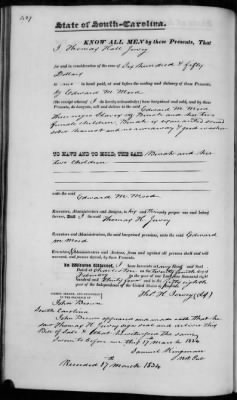 State of South-Carolina.
KNOW ALL MEN by these Presents, That
I Thomas Hall Jervey
for and in consideration of the sum of Six Hundred & fifty
Dollars
to me in hand paid, at and before the sealing and delivery of these Presents,
by Edward M. Mood
(the receipt whereof I do hereby acknowledge) have bargained and sold, and by these
Presents, do bargain, sell and deliver to the said Edward M. Mood
two
female children, Binah is
sober honest and no runaway & good washer
TO HAVE AND TO HOLD, THE SAID Binah and her
two Children
unto the said
Edward M Mood
Executors, Administrators and Assigns, to his and their only proper use and behoof
forever, And I the said Thomas H. Jervey
Executors, Administrators, the said bargained premises, unto the said Edward
M Mood
Executors, Administrators and Assigns, from and against all persons shall and will
warrant, and forever defend by these Presents.
In Witness Whereof, I have hereunto set my Hand and Seal
Dated at Charleston on the Twenty fourth day of
February in the year of our Lord one thousand eight
hundred and thirty four and in the fifty eighth
year of the Independence of the United States of America.
Tho H. Jervey (LS)
SIGNED, SEALED, AND DELIVERED
IN THE PRESENCE OF
John
South Carolina
John appeared and made oath that he
saw Thomas H. Jervey sign seal and deliver this
Bill of Sale & that he witnessed the same
Sworn to before me this 17 March 1834
Samuel
Recorded 17th March 1834